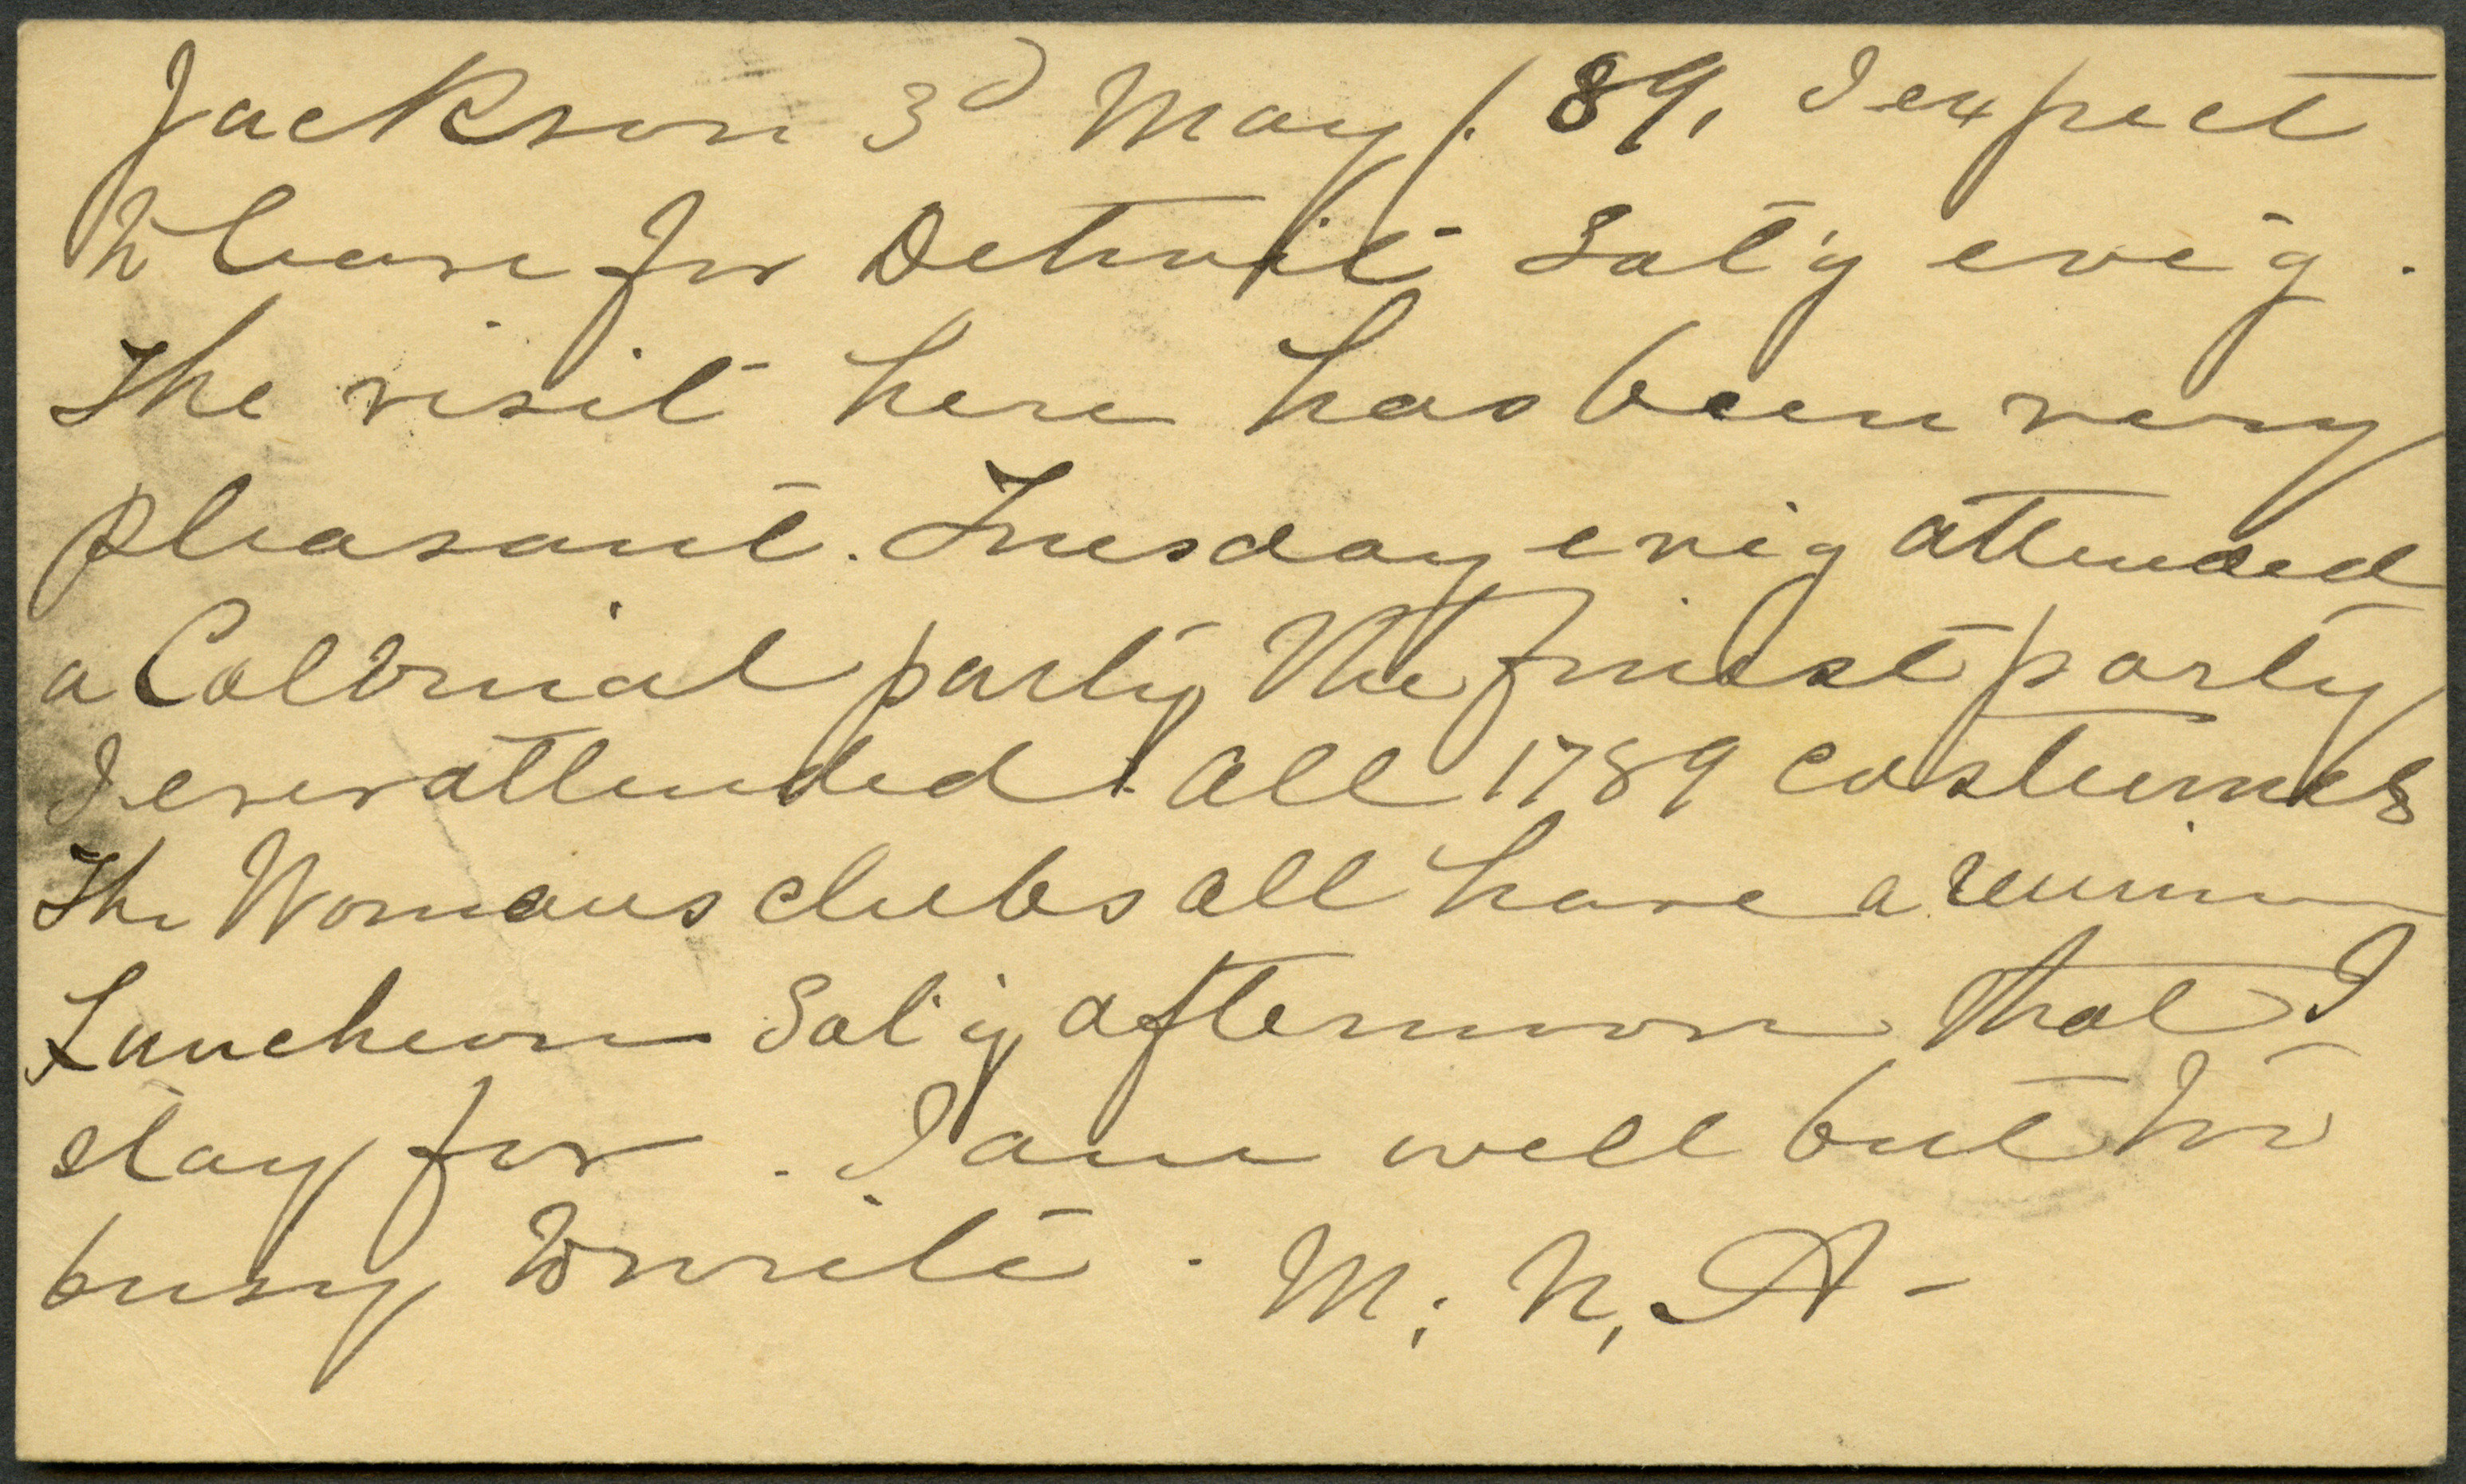 Jackson 3d May / 89, I expect
to leave for Detroit Sat'y eve'g.
The visit here has been very
pleasant. Tuesday evig attended
a Colonial party, the finest party
I ever attended. All 1789 costumes
The Womans clubs all have a reunion
Luncheon Sat'y afternoon that I
stay for. I am well but too
busy to write. M. N. A-